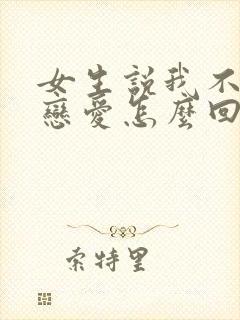 女生說我不
戀愛怎麼回
索特里